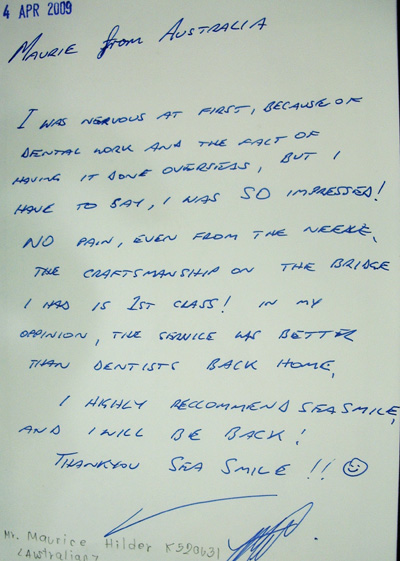 4 APR 2009
MAURIE from AUSTRALIA
I WAS NERVOUS AT FIRST, BECAUSE OF
DENTAL WORK AND THE FACT OF
HAVING IT DONE OVERSEAS, BUT I
HAVE TO SAY, I WAS SO IMPRESSED!
NO PAIN, EVEN FROM THE NEEDLE,
THE CRAFTSMANSHIP ON THE BRIDGE
I HAD IS 1ST CLASS! IN MY
OPPINION, THE SERVICE WAS BETTER
THAN DENTISTS BACK HOME,
I HIGHLY RECCOMMEND SEA SMILE,
AND I WILL BE BACK!
THANKYOU SEA SMILE !! ☺
Mr. Maurice Hilder K520631